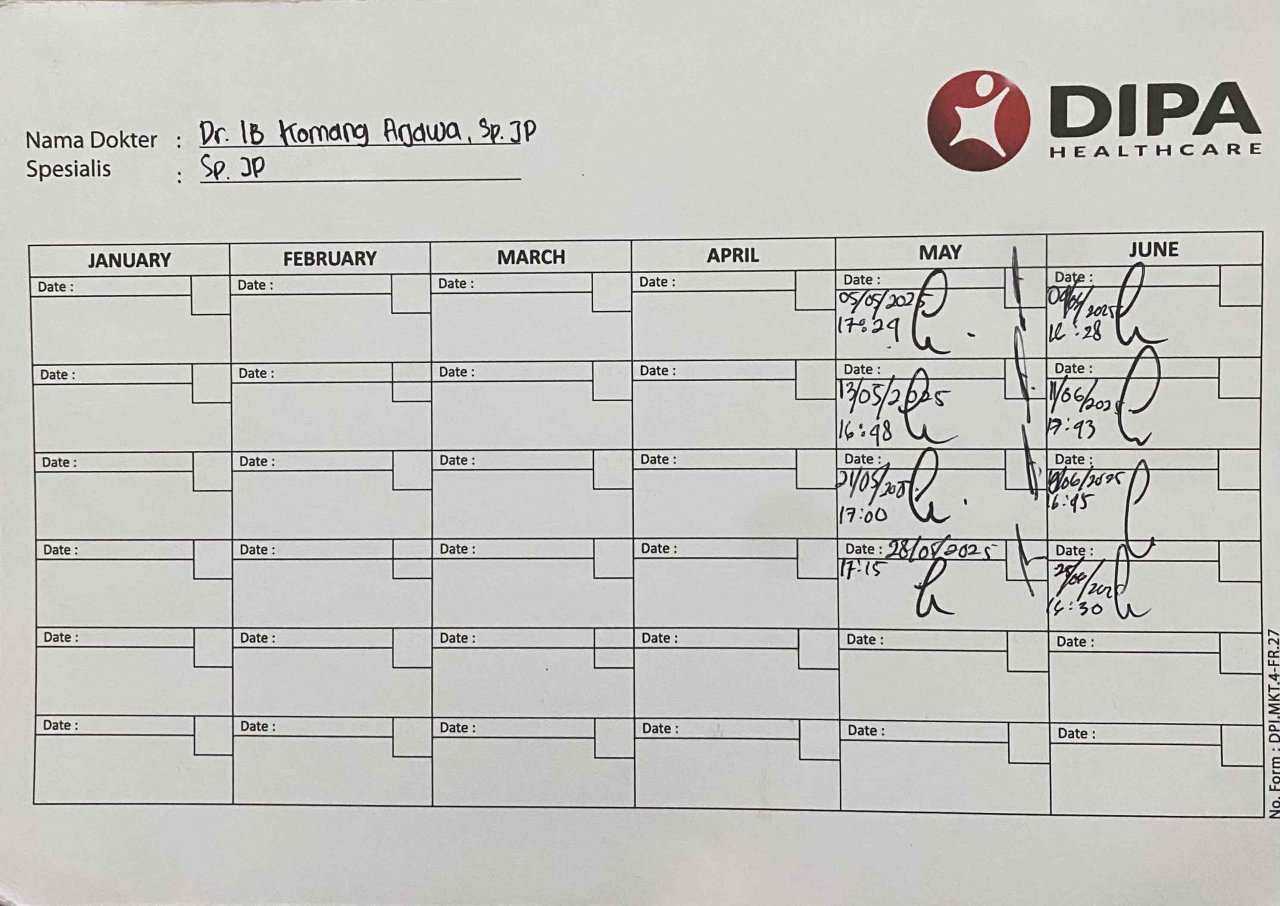 DIPA
HEALTHCARE
Nama Dokter : Dr. IB Komang Arjawa, Sp.JP
Spesialis : Sp. JP
JANUARY FEBRUARY MARCH APRIL MAY JUNE
Date : Date : Date : Date : Date : Date :
05/05/2025
17:29 :28
Date : Date : Date : Date : Date : Date :
13/05/2025 11/06/2025
16:48 17:43
Date : Date : Date : Date : Date : Date :
21/05/ /06/2025
17:00 16:45
Date : Date : Date : Date : Date : 28/05/2025 Date :
17:15
16:30
Date : Date : Date : Date : Date : Date :
Date : Date : Date : Date : Date : Date :
No. Form : DPI.MKT.4-FR.27